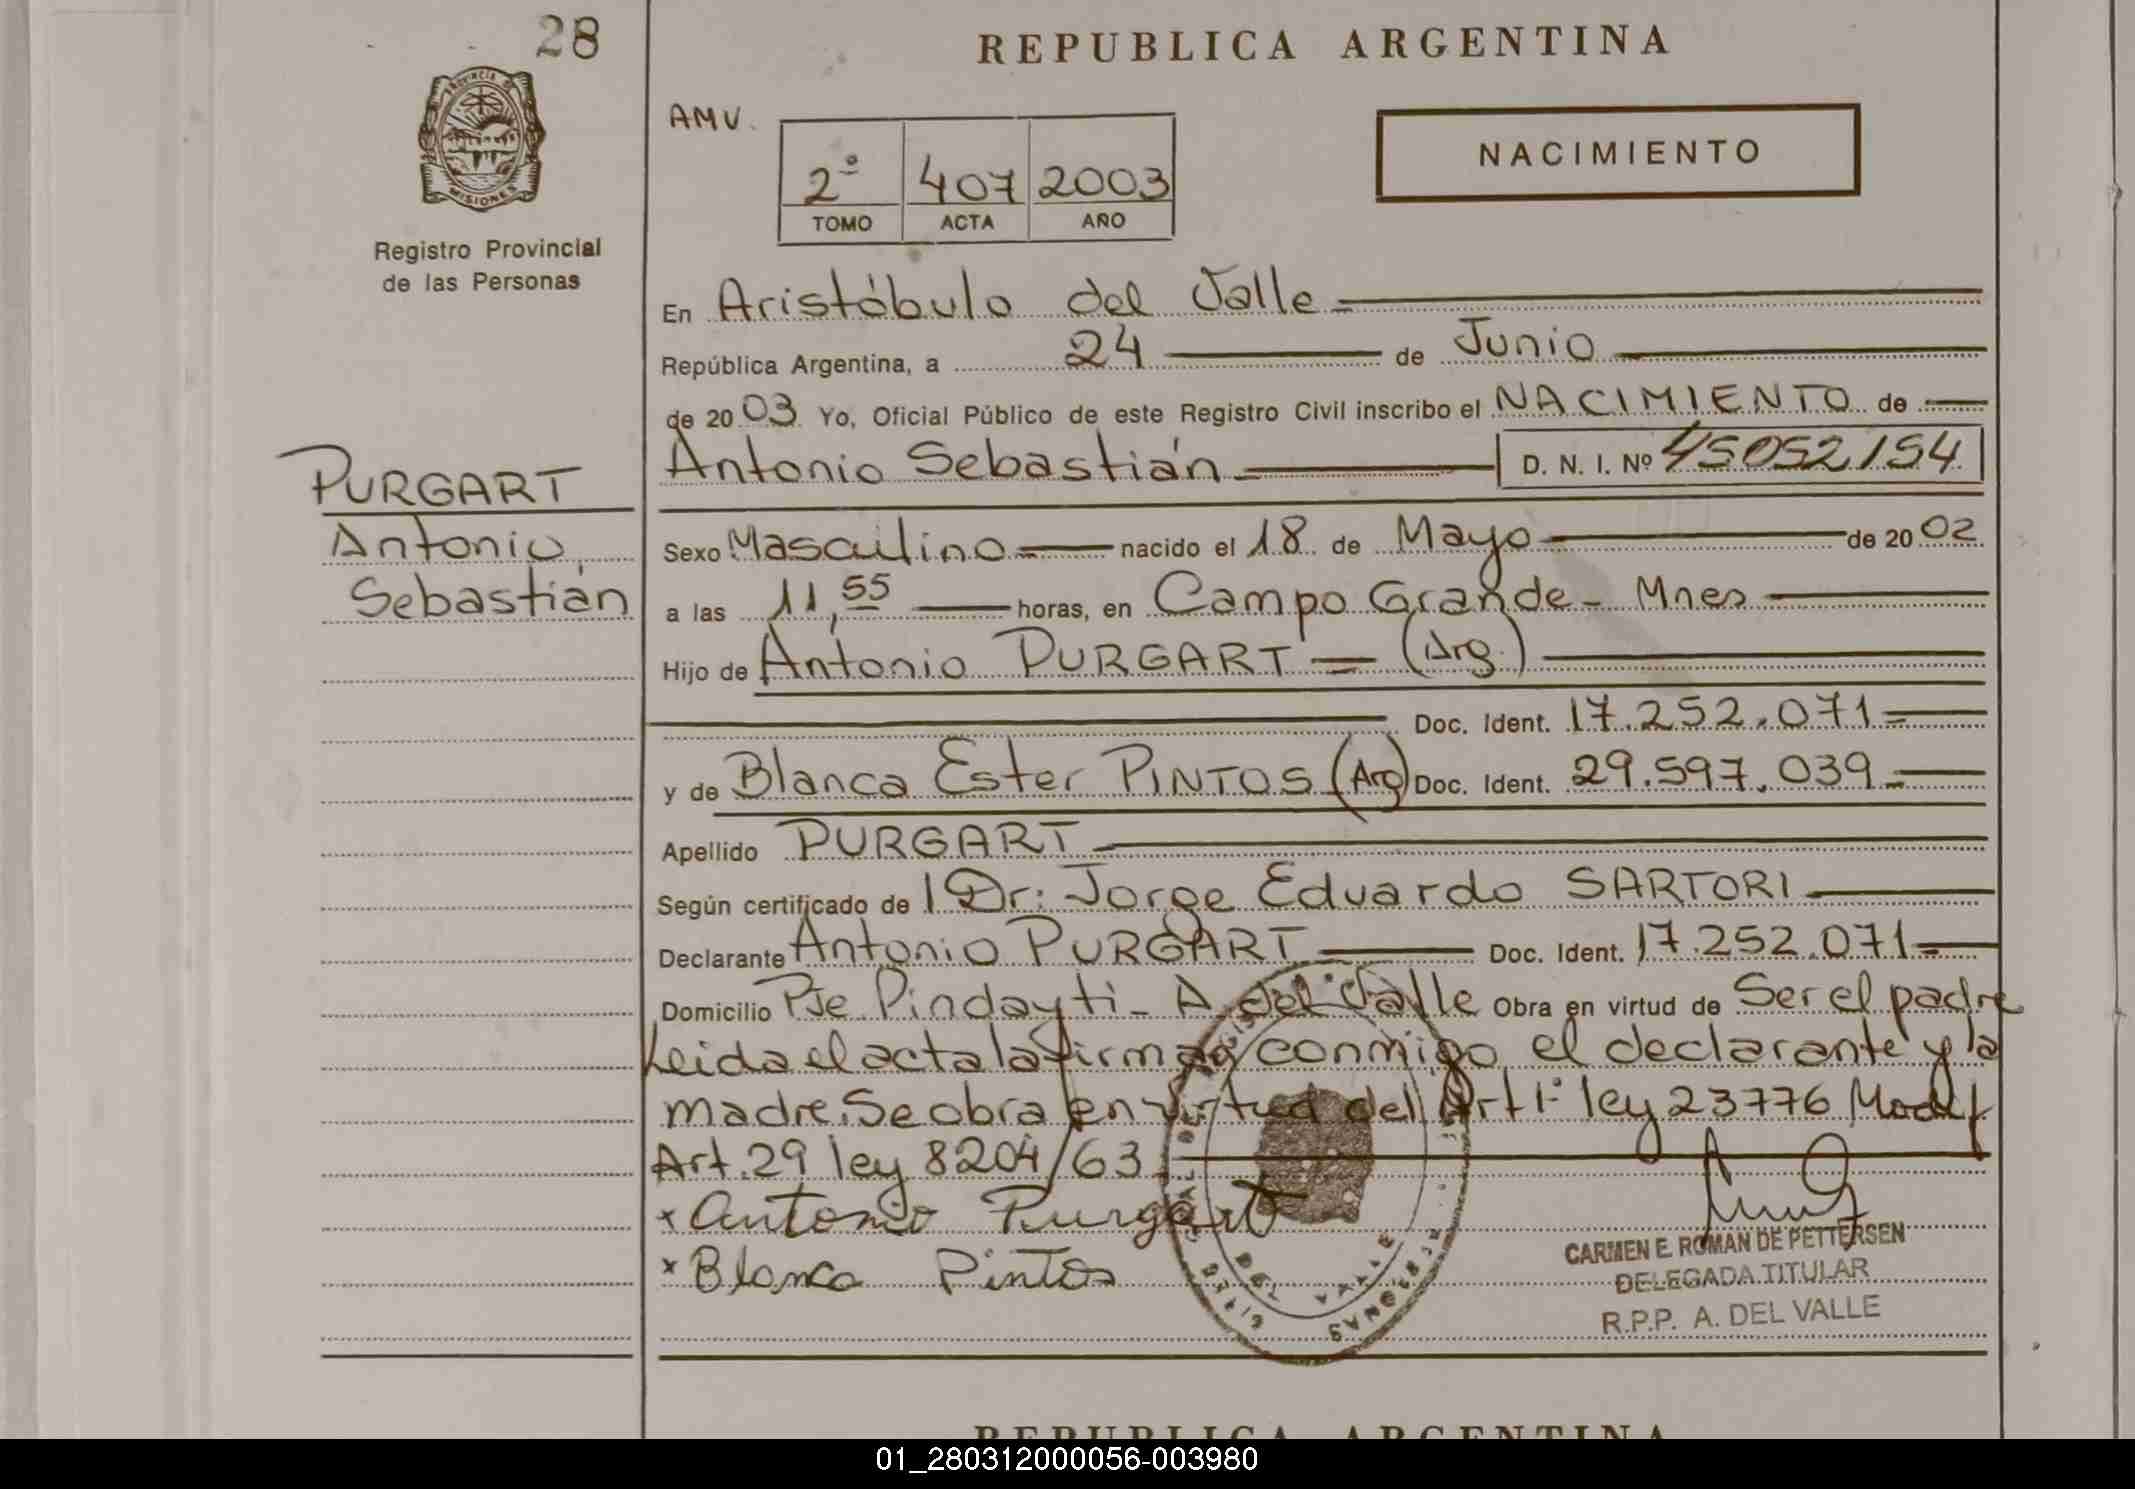 28
REPUBLICA ARGENTINA
PROVINCIA DE
MISIONES
AMV.
NACIMIENTO
2º 407 2003
TOMO ACTA AÑO
Registro Provincial
de las Personas
En Aristóbulo del Valle
República Argentina, a 24 de Junio
de 2003 Yo, Oficial Público de este Registro Civil inscribo el NACIMIENTO de
PURGART
Antonio
Sebastián
Antonio Sebastián D. N. I. Nº 45052154
Sexo Masculino nacido el 18 de Mayo de 2002
a las 11,55 horas, en Campo Grande - Mnes
Hijo de Antonio PURGART = (Arg.)
Doc. Ident. 17.252.071
y de Blanca Ester PINTOS (Arg) Doc. Ident. 29.597.039
Apellido PURGART
Según certificado de l Dr: Jorge Eduardo SARTORI
Declarante Antonio PURGART Doc. Ident. 17.252.071
Domicilio Pje Pindayti - A. del Valle Obra en virtud de Ser el padre
Leida el acta la firman conmigo el declarante y la
madre. Se obra en virtud del Art 1º ley 23776 Modif
Art. 29 ley 8204/63
x Antonio Purgart
x Blanca Pintos
DEL VALLE
PERSONAS
CARMEN E. ROMAN DE PETTERSEN
DELEGADA TITULAR
R.P.P. A. DEL VALLE
REPUBLICA ARGENTINA
01_280312000056-003980